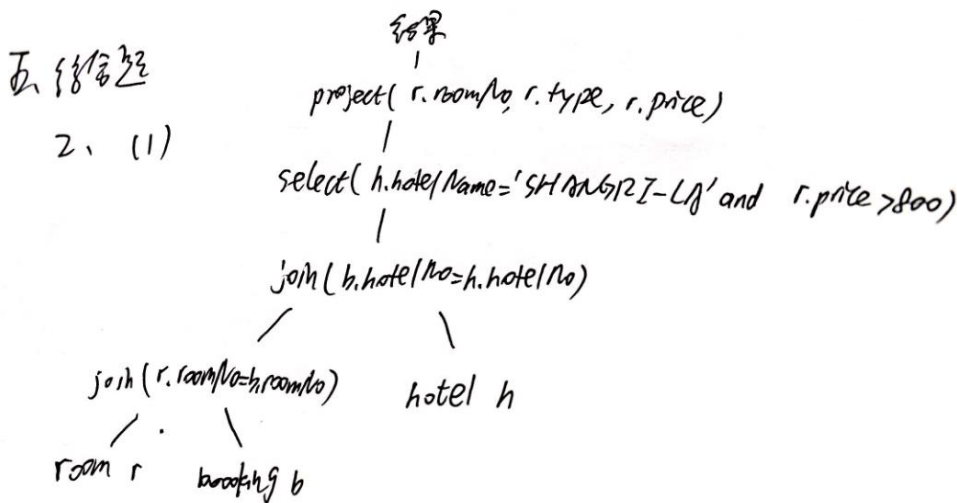 结果
五、综合题
project( r.roomNo, r.type, r.price)
2、(1)
select( h.hotelName='SHANGRI-LA' and r.price >800)
join( b.hotelNo=h.hotelNo)
join( r.roomNo=b.roomNo)
hotel h
room r
booking b